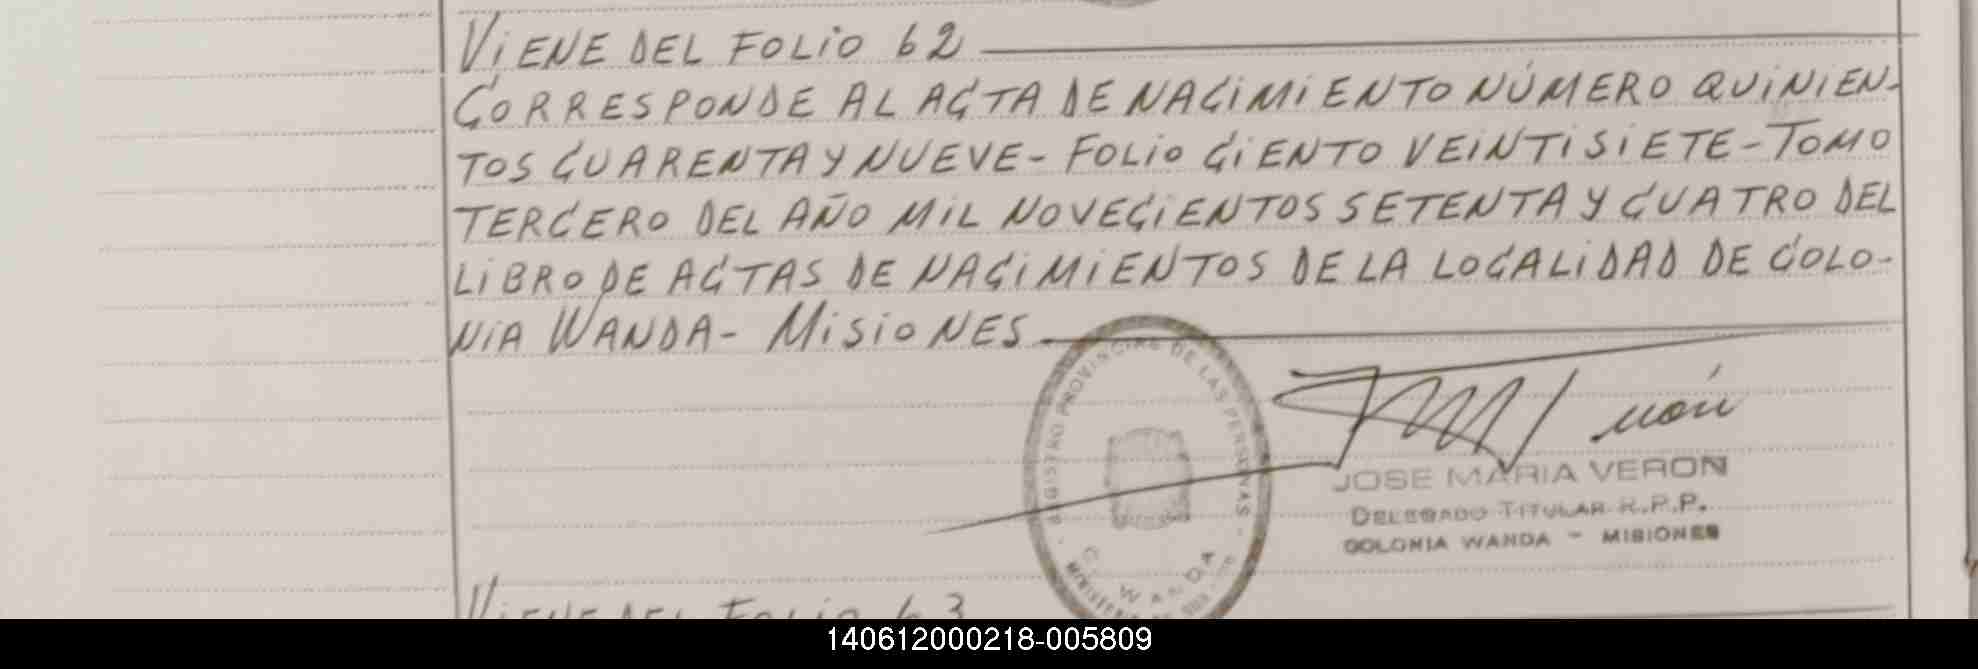 VIENE DEL FOLIO 62
CORRESPONDE AL ACTA DE NACIMIENTO NÚMERO QUINIEN-
TOS CUARENTA Y NUEVE - FOLIO CIENTO VEINTISIETE - TOMO
TERCERO DEL AÑO MIL NOVECIENTOS SETENTA Y CUATRO DEL
LIBRO DE ACTAS DE NACIMIENTOS DE LA LOCALIDAD DE COLO-
NIA WANDA - MISIONES
REGISTRO PROVINCIAL DE LAS PERSONAS
C. WANDA
JOSE MARIA VERON
DELEGADO TITULAR R.P.P.
COLONIA WANDA - MISIONES
VIENE DEL FOLIO 63
140612000218-005809